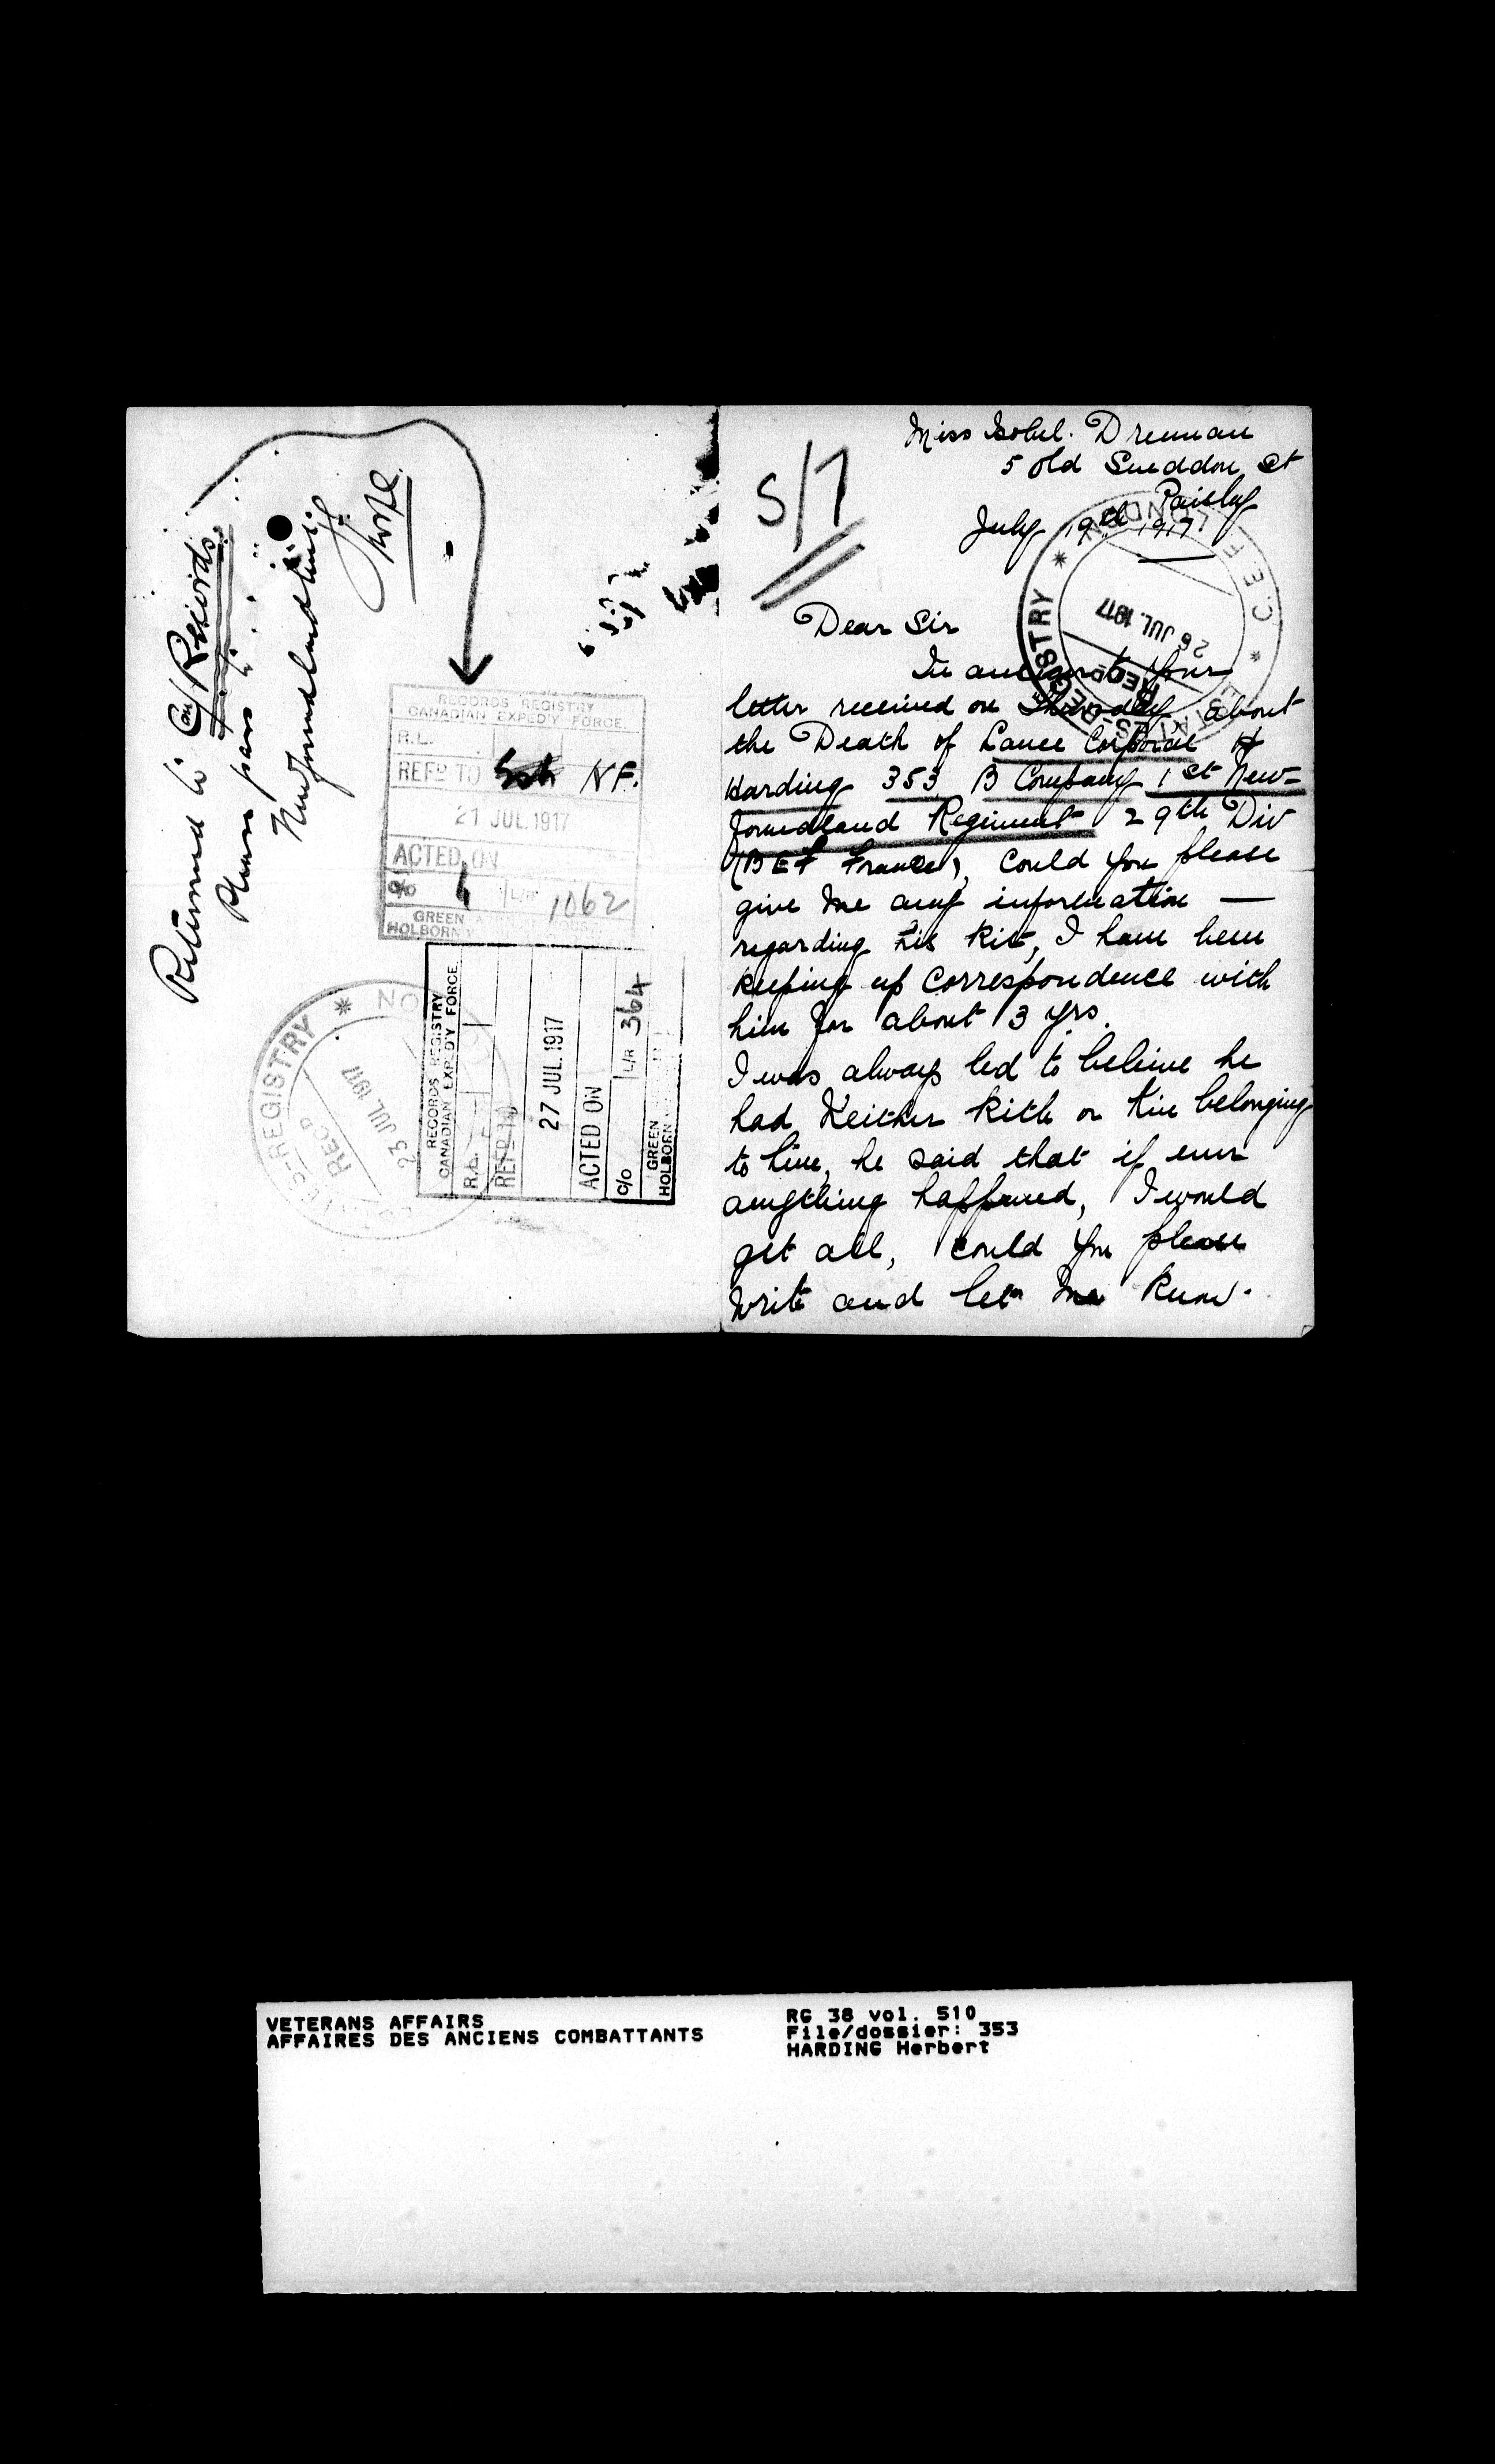 Returned to Can/Records.
Please pass to
Newfoundland unit.
RECORDS REGISTRY
CANADIAN EXPED'Y FORCE.
R.L.
REFD TO NF.
21 JUL 1917
ACTED ON
c/o L/R 1062
GREEN
HOLBORN
RECORDS REGISTRY
CANADIAN EXP'D'Y FORCE
R.L.
REFD TO
27 JUL 1917
ACTED ON
c/o L/R 364
GREEN
HOLBORN
ES-REGISTRY * NO ON
REC'D
23 JUL 1917
S/7
Miss Isobel. Drennan
5 Old Sneddon St
Paisley
July 19th 1917
* C.E.F. * REGISTRY * LONDON
REC'D
26 JUL. 1917
Dear Sir
In answer to your
letter received on Thursday about
the Death of Lance Corporal H
Harding 353 B Company 1st New=
foundland Regiment 29th Div
(BEF France), Could you please
give me any information —
regarding his kit, I have been
keeping up correspondence with
him for about 3 yrs.
I was always led to beleive he
had Neither kith or kin belonging
to him, he said that if ever
anything happened, I would
get all, could you please
write and let me know.
VETERANS AFFAIRS
AFFAIRES DES ANCIENS COMBATTANTS
RG 38 vol. 510
File/dossier: 353
HARDING Herbert